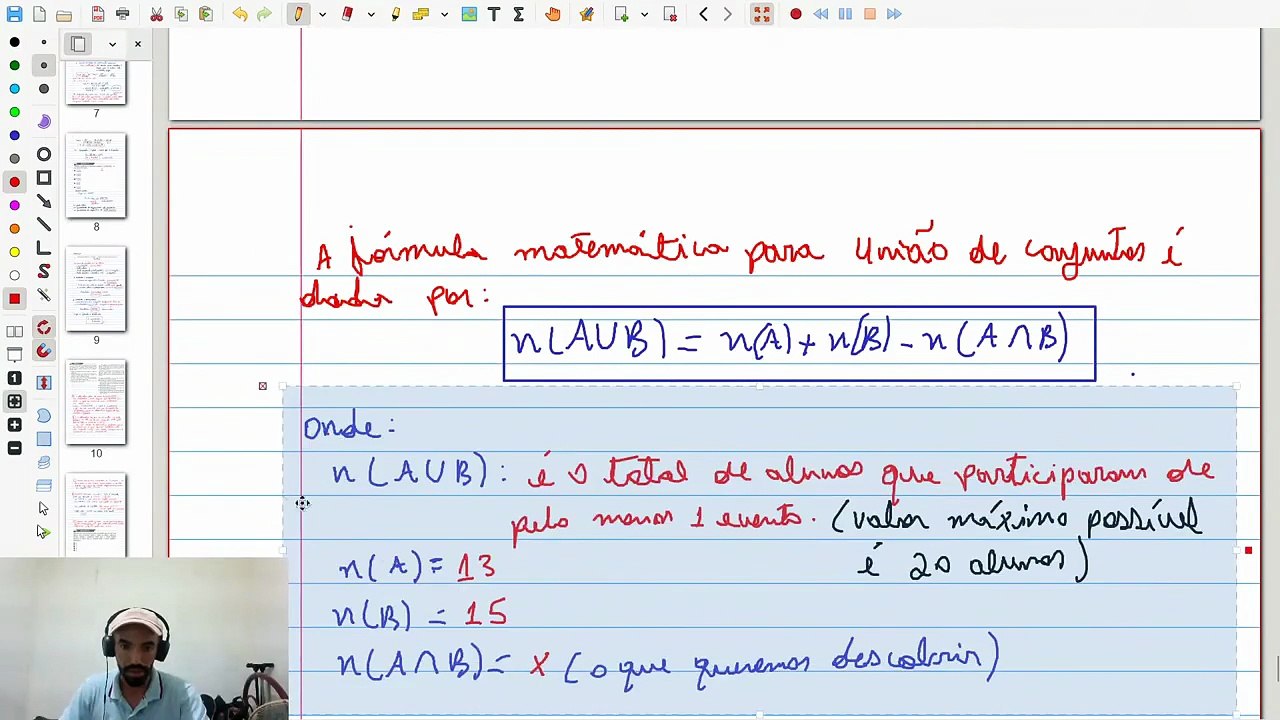 7
8
9
10
A fórmula matemática para União de conjuntos é
dada por:
n(A∪B) = n(A) + n(B) - n(A∩B)
Onde:
n(A∪B): é o total de alunos que participaram de
pelo menos 1 evento. (valor máximo possível
é 20 alunos)
n(A) = 13
n(B) = 15
n(A∩B) = x (o que queremos descobrir)